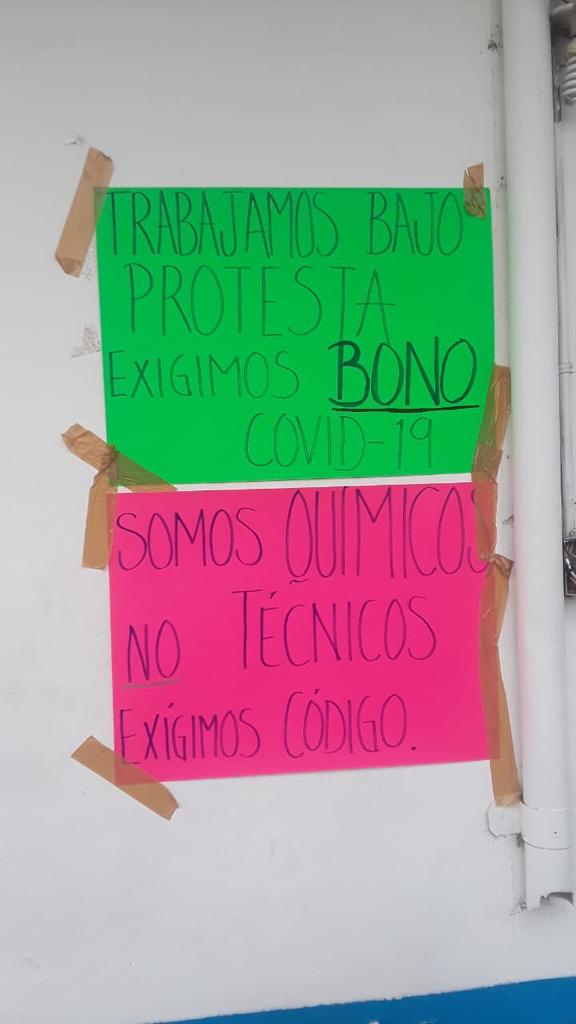 TRABAJAMOS BAJO
PROTESTA
EXIGIMOS BONO
COVID-19
SOMOS QUÍMICOS
NO TÉCNICOS
EXÍGIMOS CÓDIGO.